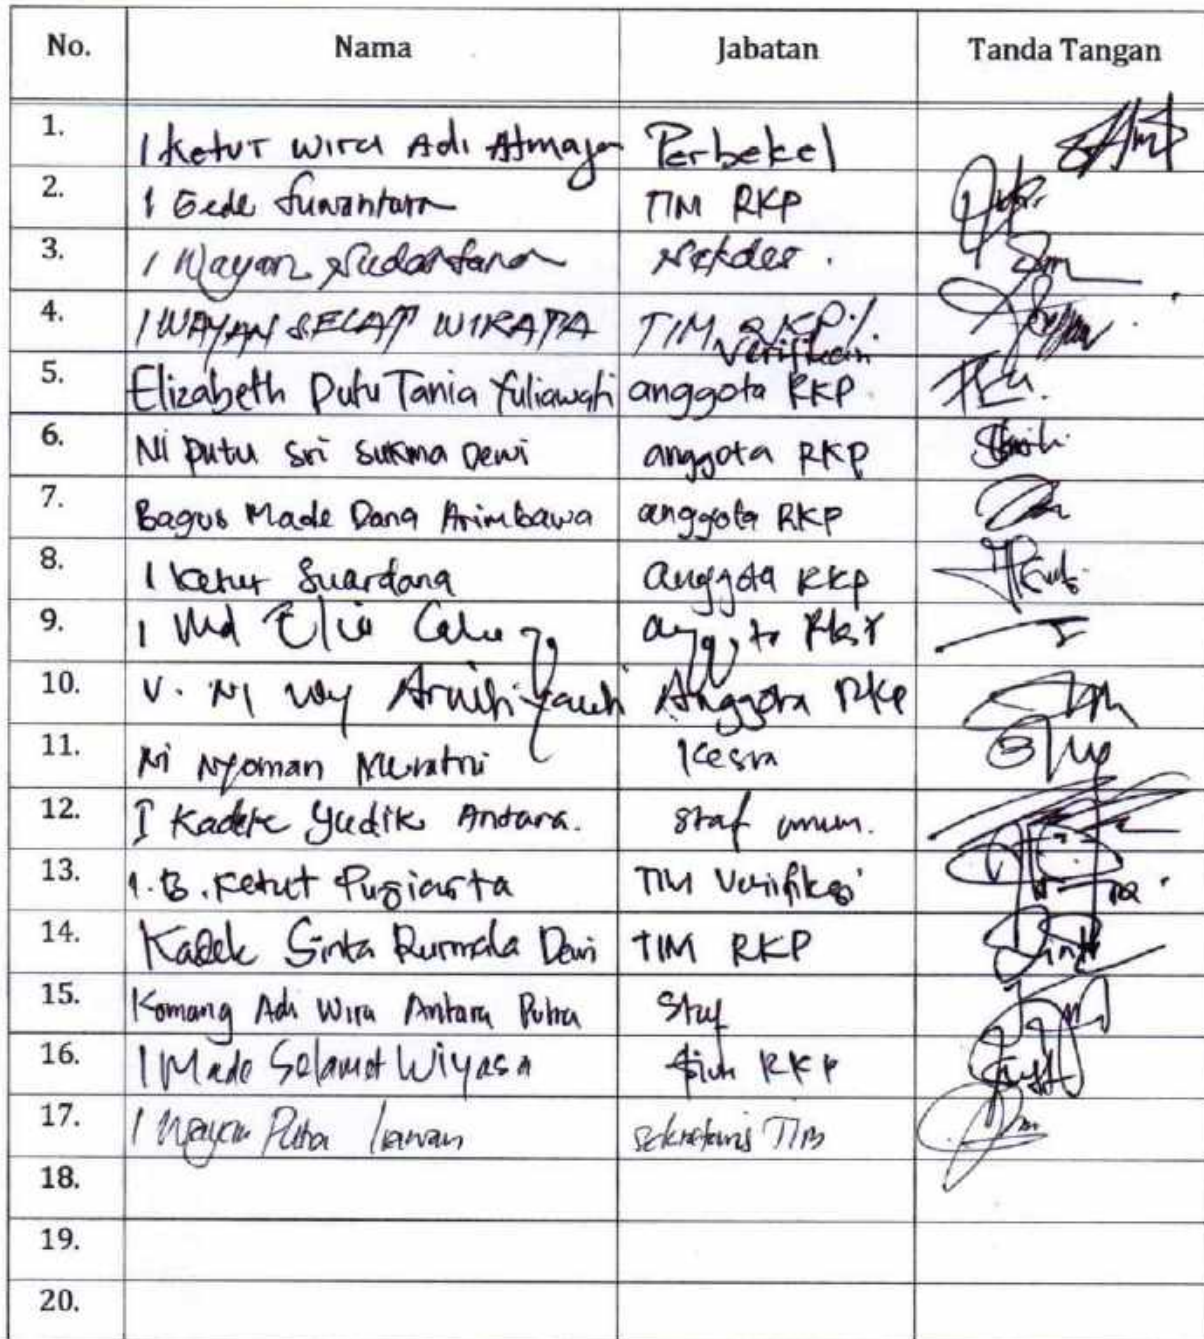 No. Nama Jabatan Tanda Tangan
1. I Ketut Wira Adi Atmaja Perbekel
2. I Gede Suwantara TIM RKP
3. I Wayan Sudartana Sekdes.
4. I WAYAN SELAT WIRATA TIM RKP/
Verifikasi
5. Elizabeth Putu Tania Yuliawati anggota RKP.
6. Ni Putu Sri Sukma Dewi anggota RKP
7. Bagus Made Dana Arimbawa anggota RKP
8. I Ketut Suardana anggota RKP
9. I Md
10. Ni Wy Anggota RKP
11. Ni Nyoman Muratni Kesra
12. I Kadek Yudik Antara. Staf umum.
13. I.B. Ketut Pugiarta TIM Verifikasi
14. Kadek Sinta Purmala Dewi TIM RKP
15. Komang Adi Wira Antara Putra Staf
16. I Made Selamet Wiyasa RKP
17. I Wayan Putra Irawan Sekretaris TIM
18.
19.
20.